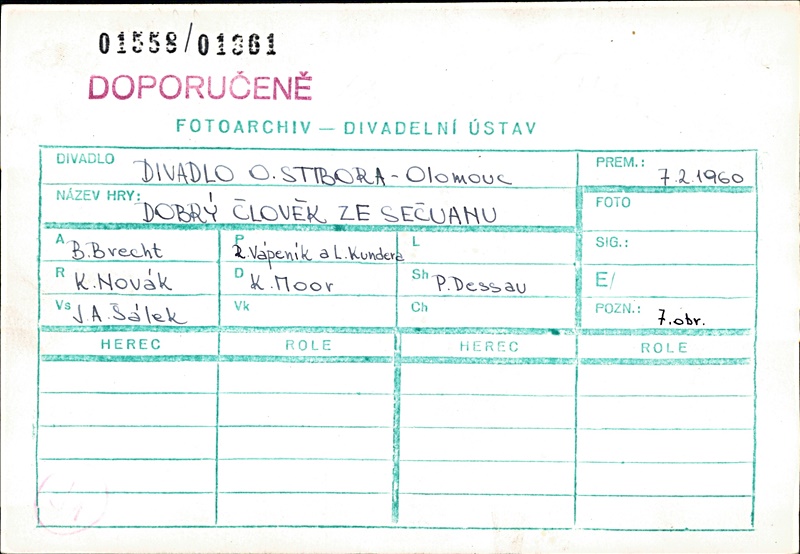 01558/01361
DOPORUČENĚ
FOTOARCHIV — DIVADELNÍ ÚSTAV
DIVADLO DIVADLO O. STIBORA - Olomouc PREM.: 7.2.1960
NÁZEV HRY: DOBRÝ ČLOVĚK ZE SEČUANU FOTO
A B. Brecht P R. Vápeník a L. Kundera L SIG.:
R K. Novák D K. Moor Sh P. Dessau E/
Vs J. A. Šálek Vk Ch POZN.: 7. obr.
HEREC ROLE HEREC ROLE